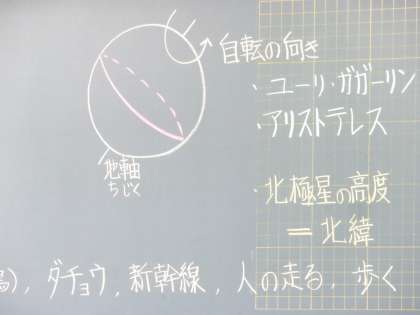 自転の向き
・ユーリ・ガガーリン
・アリストテレス
地軸
ちじく
・北極星の高度
＝北緯
), ダチョウ, 新幹線, 人の走る, 歩く